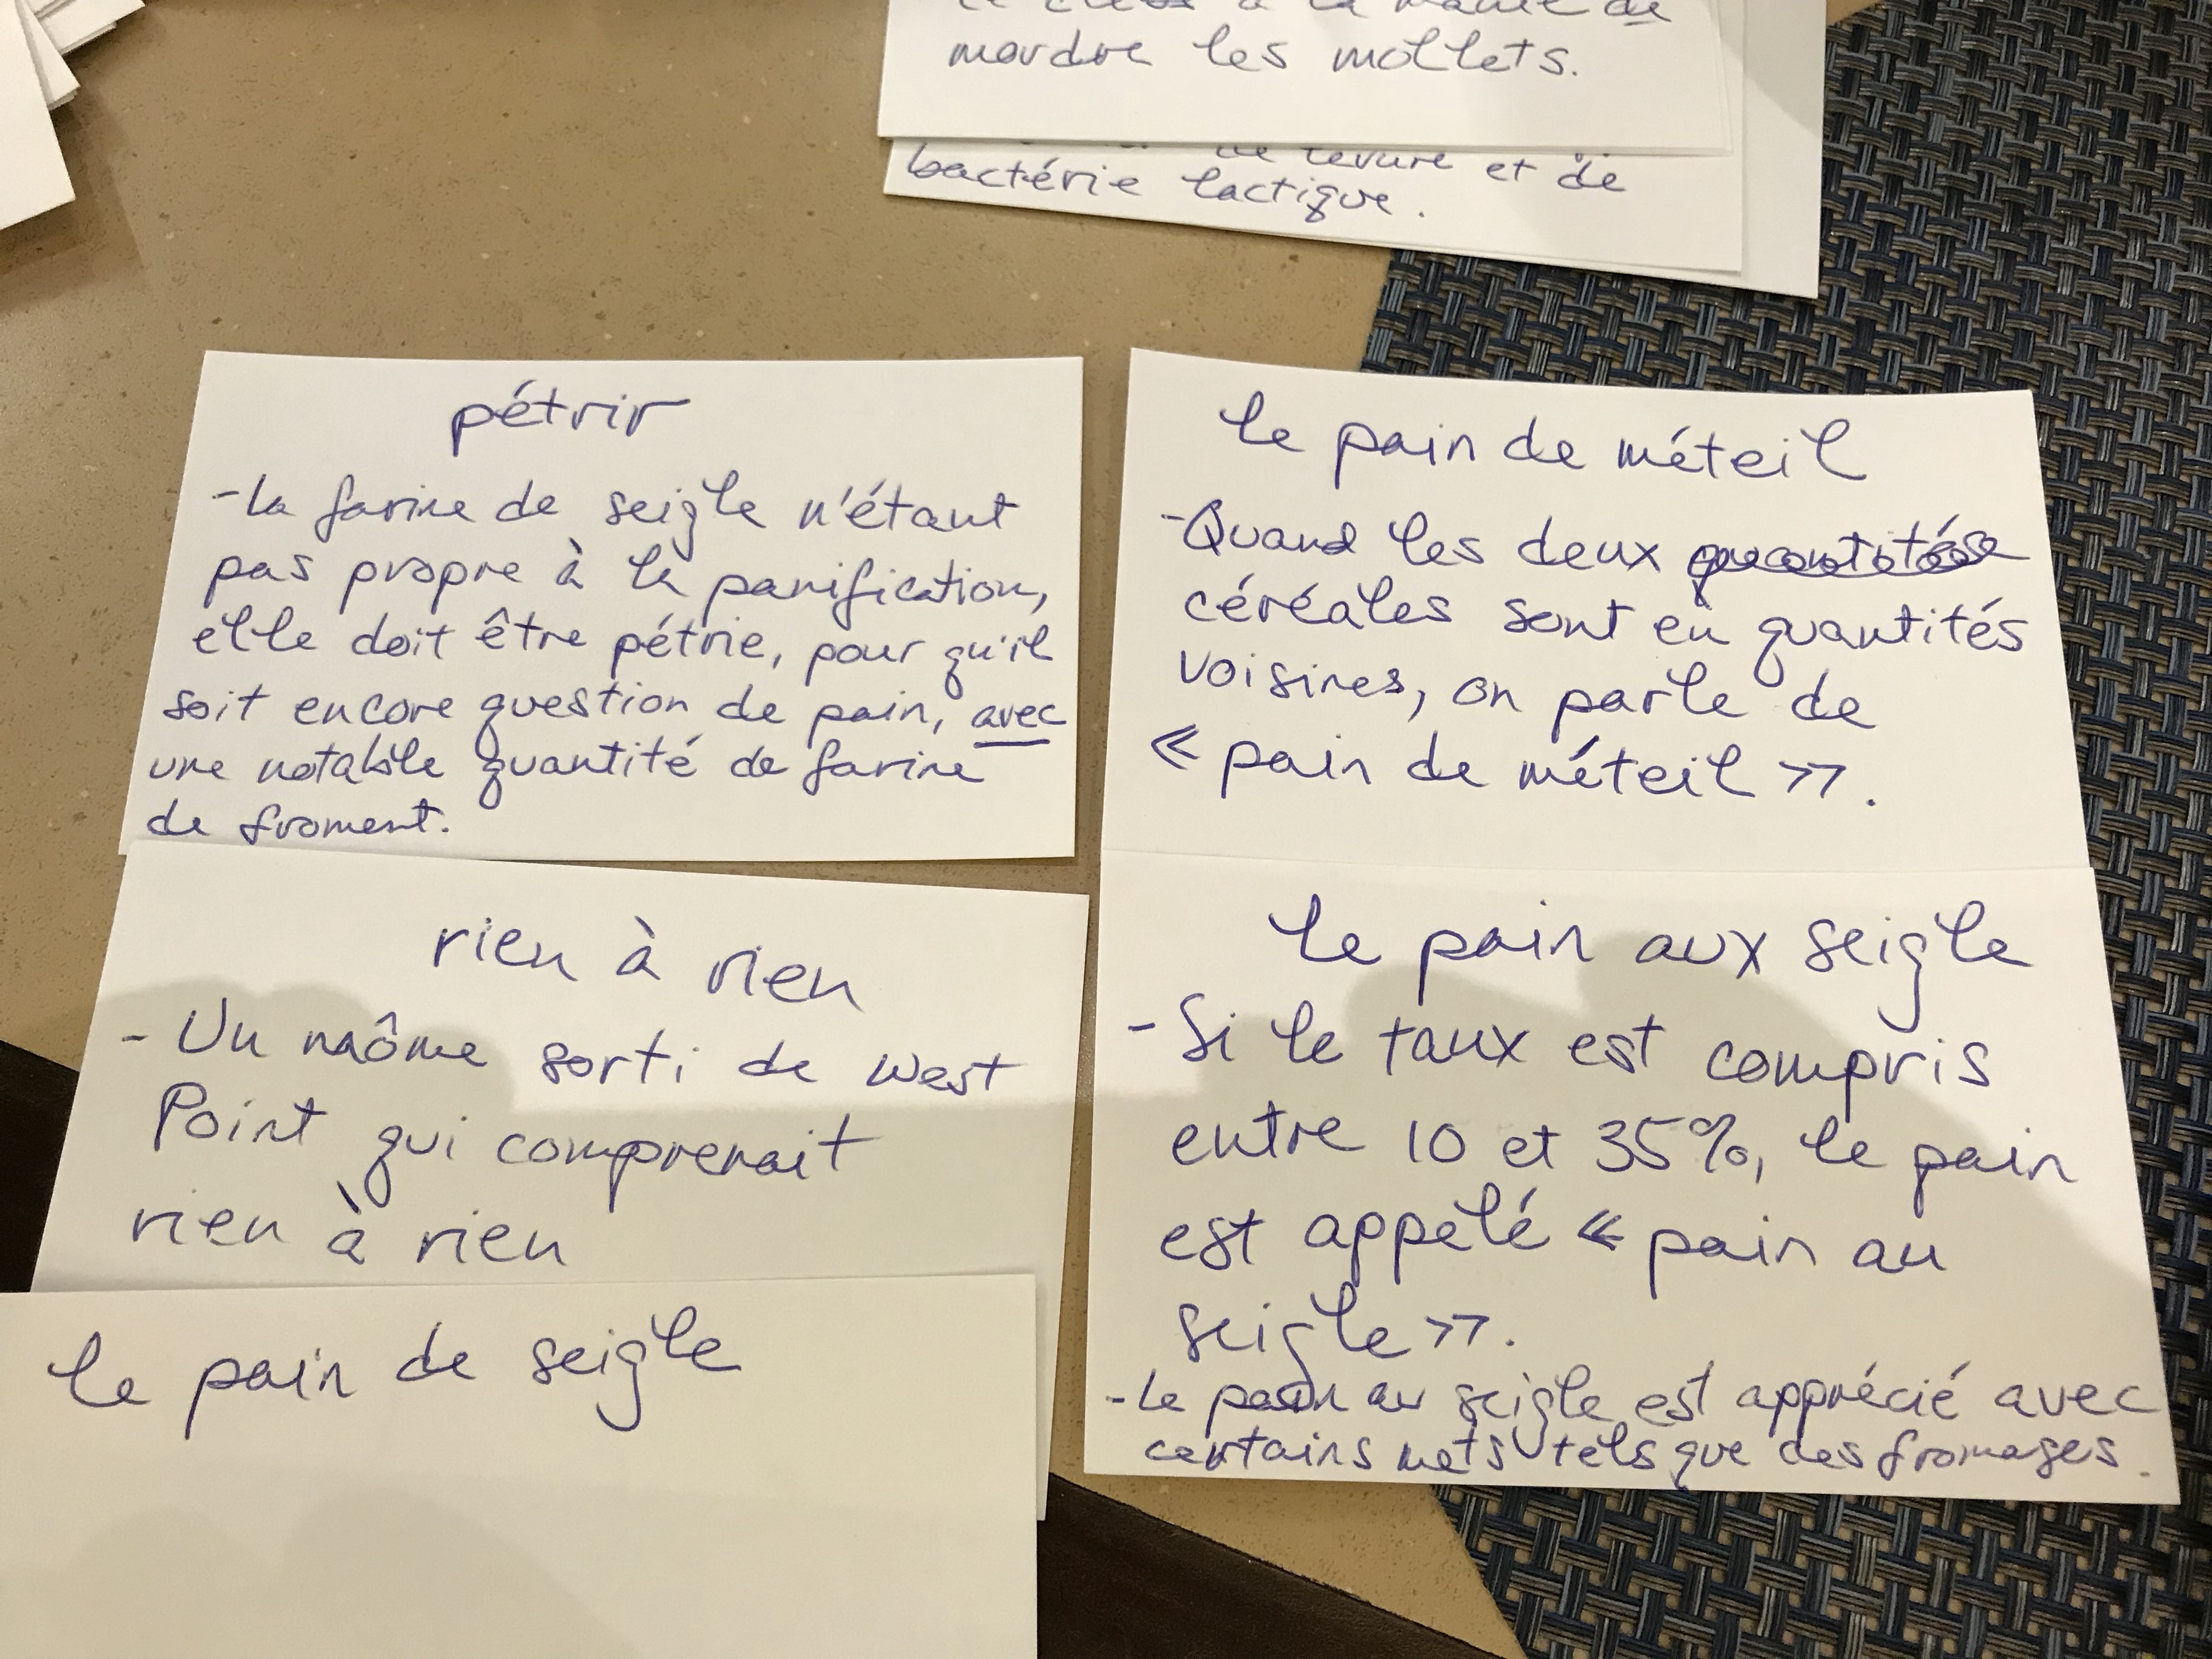 mordre les mollets.
levure et de
bactérie lactique.
pétrir
-la farine de seigle n'étant
pas propre à la panification,
elle doit être pétrie, pour qu'il
soit encore question de pain, avec
une notable quantité de farine
de froment.
rien à rien
- Un môme sorti de West
Point qui comprenait
rien à rien
le pain de seigle
le pain de méteil
-Quand les deux
céréales sont en quantités
voisines, on parle de
« pain de méteil ».
le pain aux seigle
- Si le taux est compris
entre 10 et 35%, le pain
est appelé « pain au
seigle ».
- Le pain au seigle est apprécié avec
certains mets tels que des fromages.